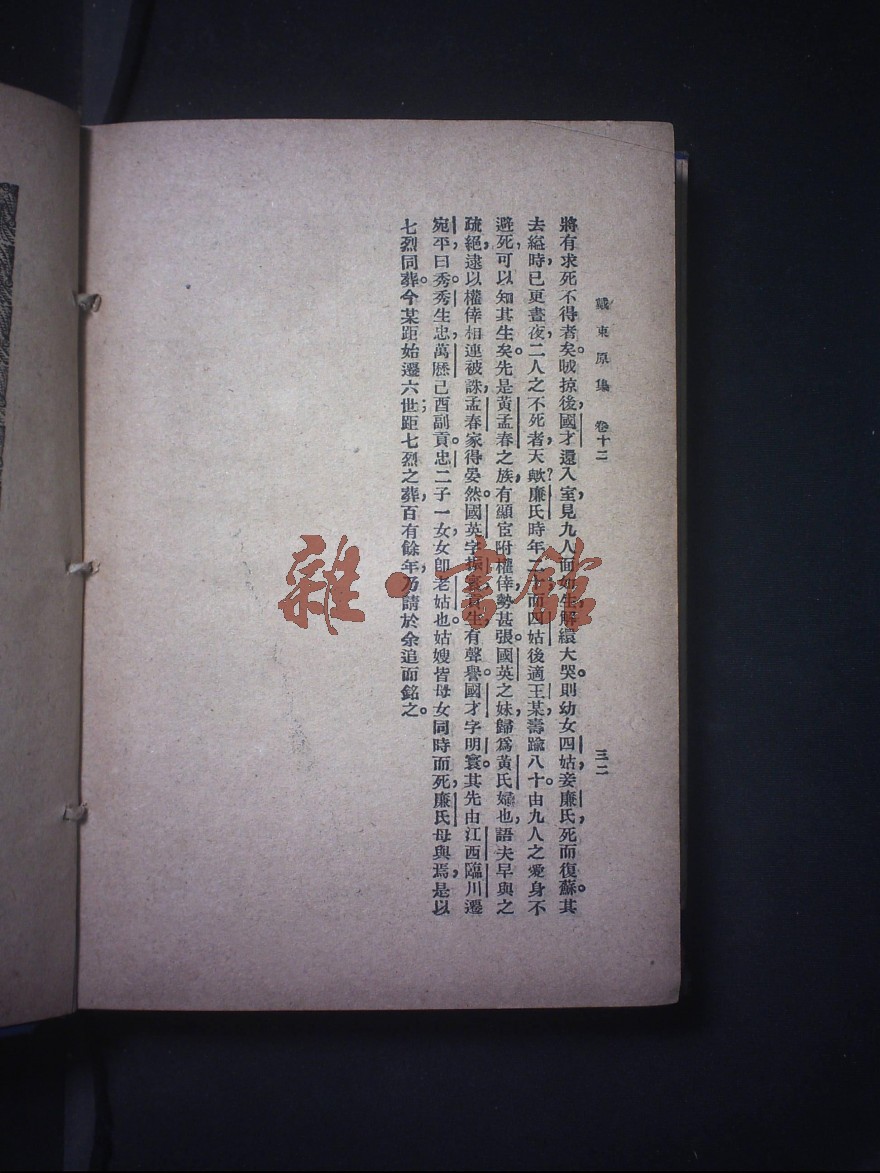 戴東原集　卷十二　三二
將有求死不得者矣。賊掠後，國才還入室，見九人面如生，解繯大哭。則幼女四姑，妾廉氏，死而復蘇。其
去縊時，已更晝夜，二人之不死者，天歟？廉氏時年二十，而四姑後適王某，壽踰八十。由九人之愛身不
避死，可以知其生矣。先是黃孟春之族，有顯宦附權倖，勢甚張，國英之妹，歸爲黃氏婦也，語夫早與之
疏絕，逮以權倖相連被誅，孟春家得晏然。國英字振寰，貢生，有聲譽。國才字明寰。其先由江西臨川遷
宛平，曰秀。秀生忠，萬曆己酉副貢。忠二子一女，女卽老姑也。姑嫂皆母女同時而死，廉氏母與焉，是以
七烈同葬。今某距始遷六世；距七烈之葬，百有餘年，乃請於余追而銘之。
雜·書館